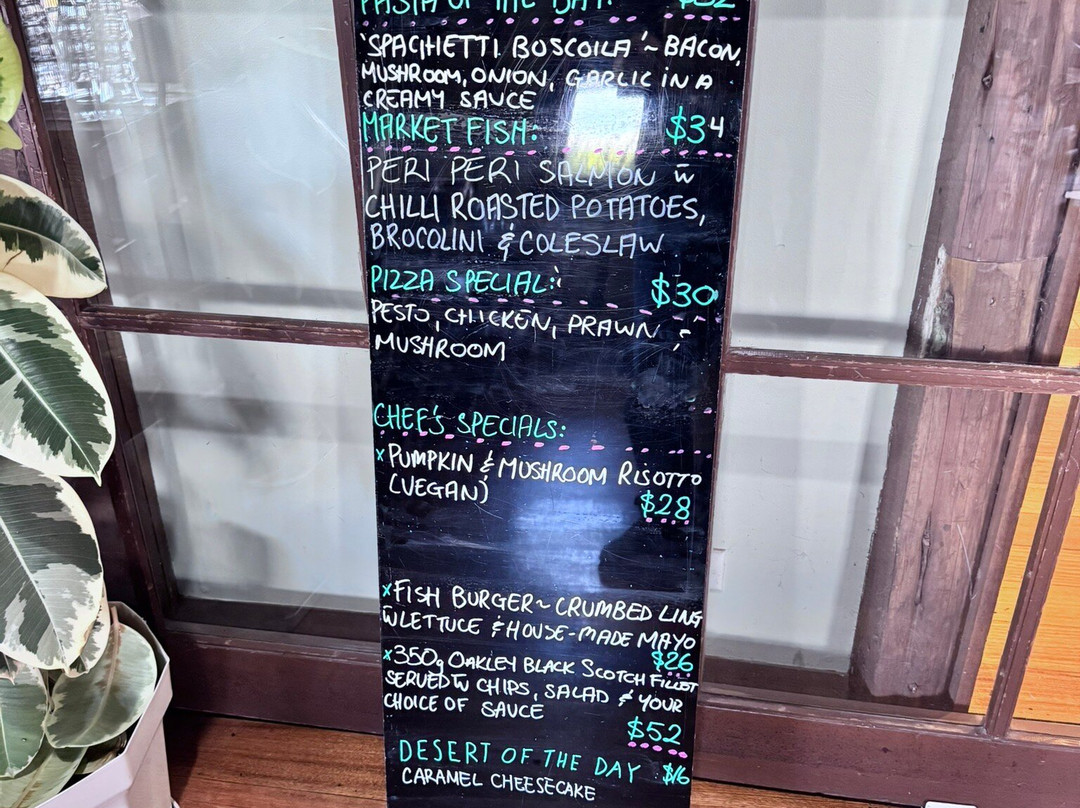 PASTA OF THE DAY: $32
'SPAGHETTI BOSCOILA' ~ BACON,
MUSHROOM, ONION, GARLIC IN A
CREAMY SAUCE
MARKET FISH: $34
PERI PERI SALMON W
CHILLI ROASTED POTATOES,
BROCOLINI & COLESLAW
PIZZA SPECIAL: $30
PESTO, CHICKEN, PRAWN &
MUSHROOM
CHEF'S SPECIALS:
x PUMPKIN & MUSHROOM RISOTTO
(VEGAN)
$28
x FISH BURGER ~ CRUMBED LING
W LETTUCE & HOUSE-MADE MAYO
$26
x 350g OAKLEY BLACK SCOTCH FILLET
SERVED W CHIPS, SALAD & YOUR
CHOICE OF SAUCE
$52
DESERT OF THE DAY $16
CARAMEL CHEESECAKE